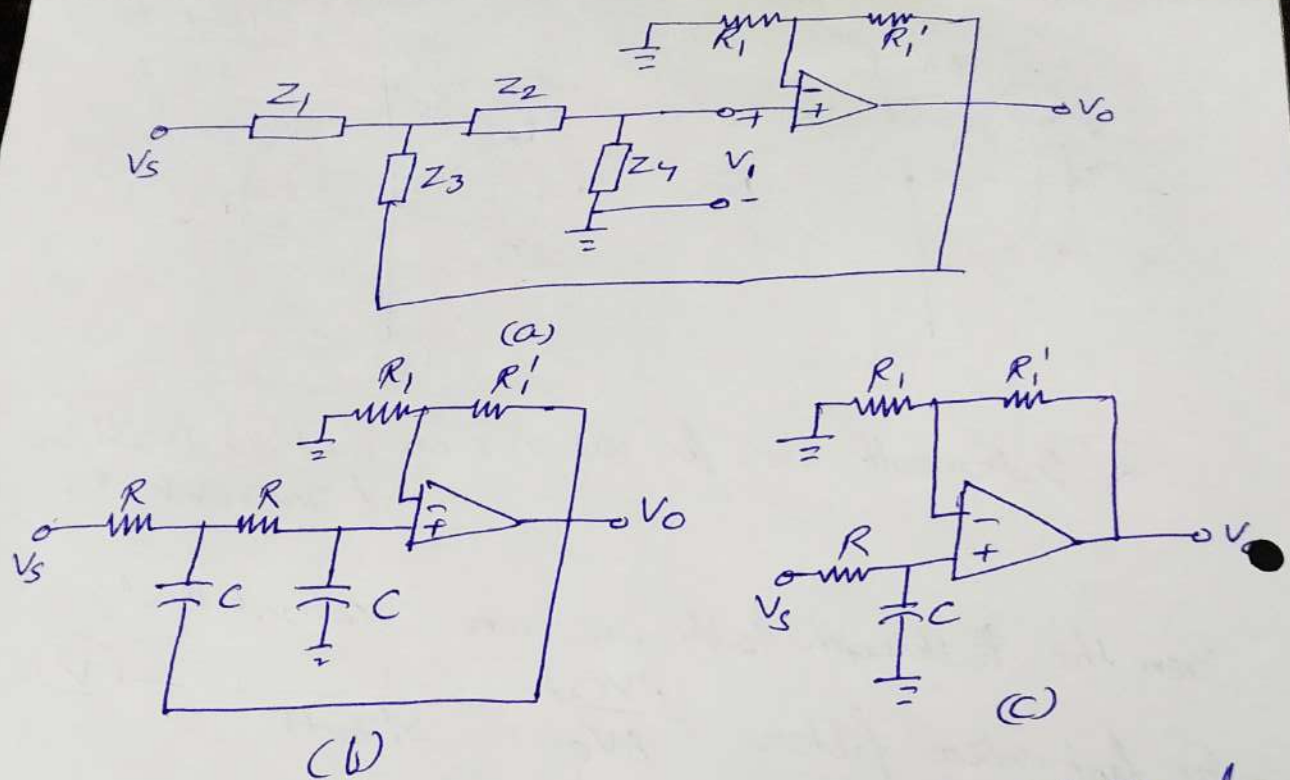 R₁ R₁'
Z₁ Z₂ − + V₀
Vₛ Z₃ Z₄ + V₁ −
(a)
R₁ R₁'
R R − + V₀
Vₛ C C
(b)
R₁ R₁'
R − +
Vₛ C
(C)